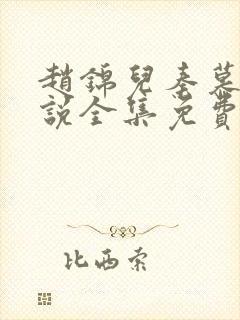 趙錦兒秦慕
說全集免費
比西索